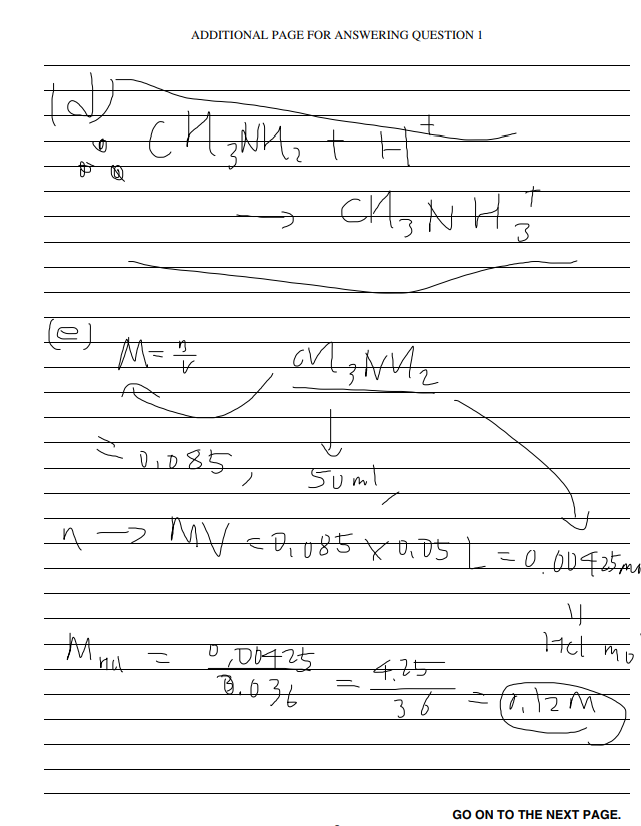 ADDITIONAL PAGE FOR ANSWERING QUESTION 1
(d)
CH3NH2 + H+
→ CH3NH3+
(e)
M = n/V CH3NH2
= 0.085, 50 ml
n → MV = 0.085 × 0.05 L = 0.00425 mo
HCl mo
MHCl = 0.00425/0.036 = 4.25/36 = 0.12 M
GO ON TO THE NEXT PAGE.